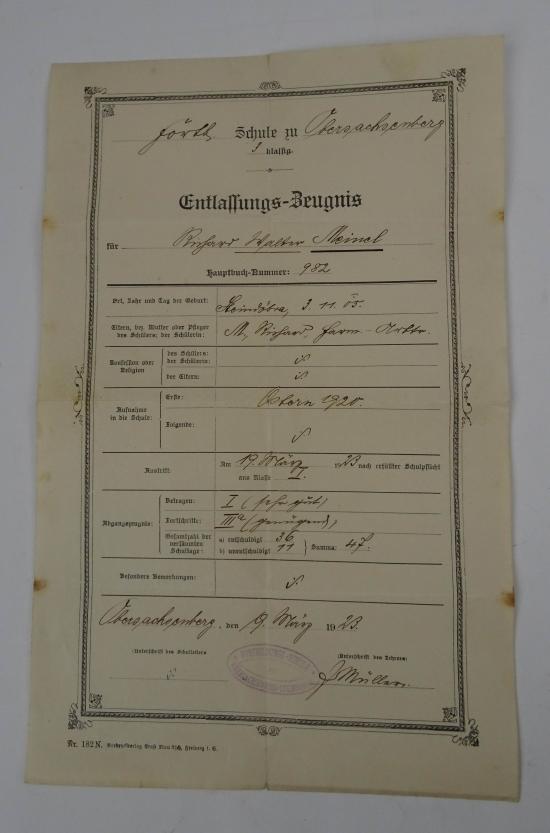 Schule zu Obersachsenberg
klassig.
Entlassungs-Zeugnis
für Richard Walter Meinel
Hauptbuch-Nummer: 982
Ort, Jahr und Tag der Geburt: Steindöbra, 3. 11. 05.
Eltern, bez. Mutter oder Pfleger
des Schülers; der Schülerin: M, Richard,
Konfession oder Religion
des Schülers:
der Schülerin:
der Eltern:
Aufnahme in die Schule:
Erste: Ostern 1920.
Folgende:
Austritt: Am März 1923 nach erfüllter Schulpflicht
aus Klasse I.
Abgangszeugnis:
Betragen: I (sehr gut)
Fortschritte: IIIa (genügend)
Gesamtzahl der versäumten Schultage: a) entschuldigt 36
b) unentschuldigt 11 } Summa: 47.
Besondere Bemerkungen:
Obersachsenberg, den 9. März 1923.
(Unterschrift des Schulleiters
(Unterschrift des Lehrers)
Müller.
Nr. 182 N.